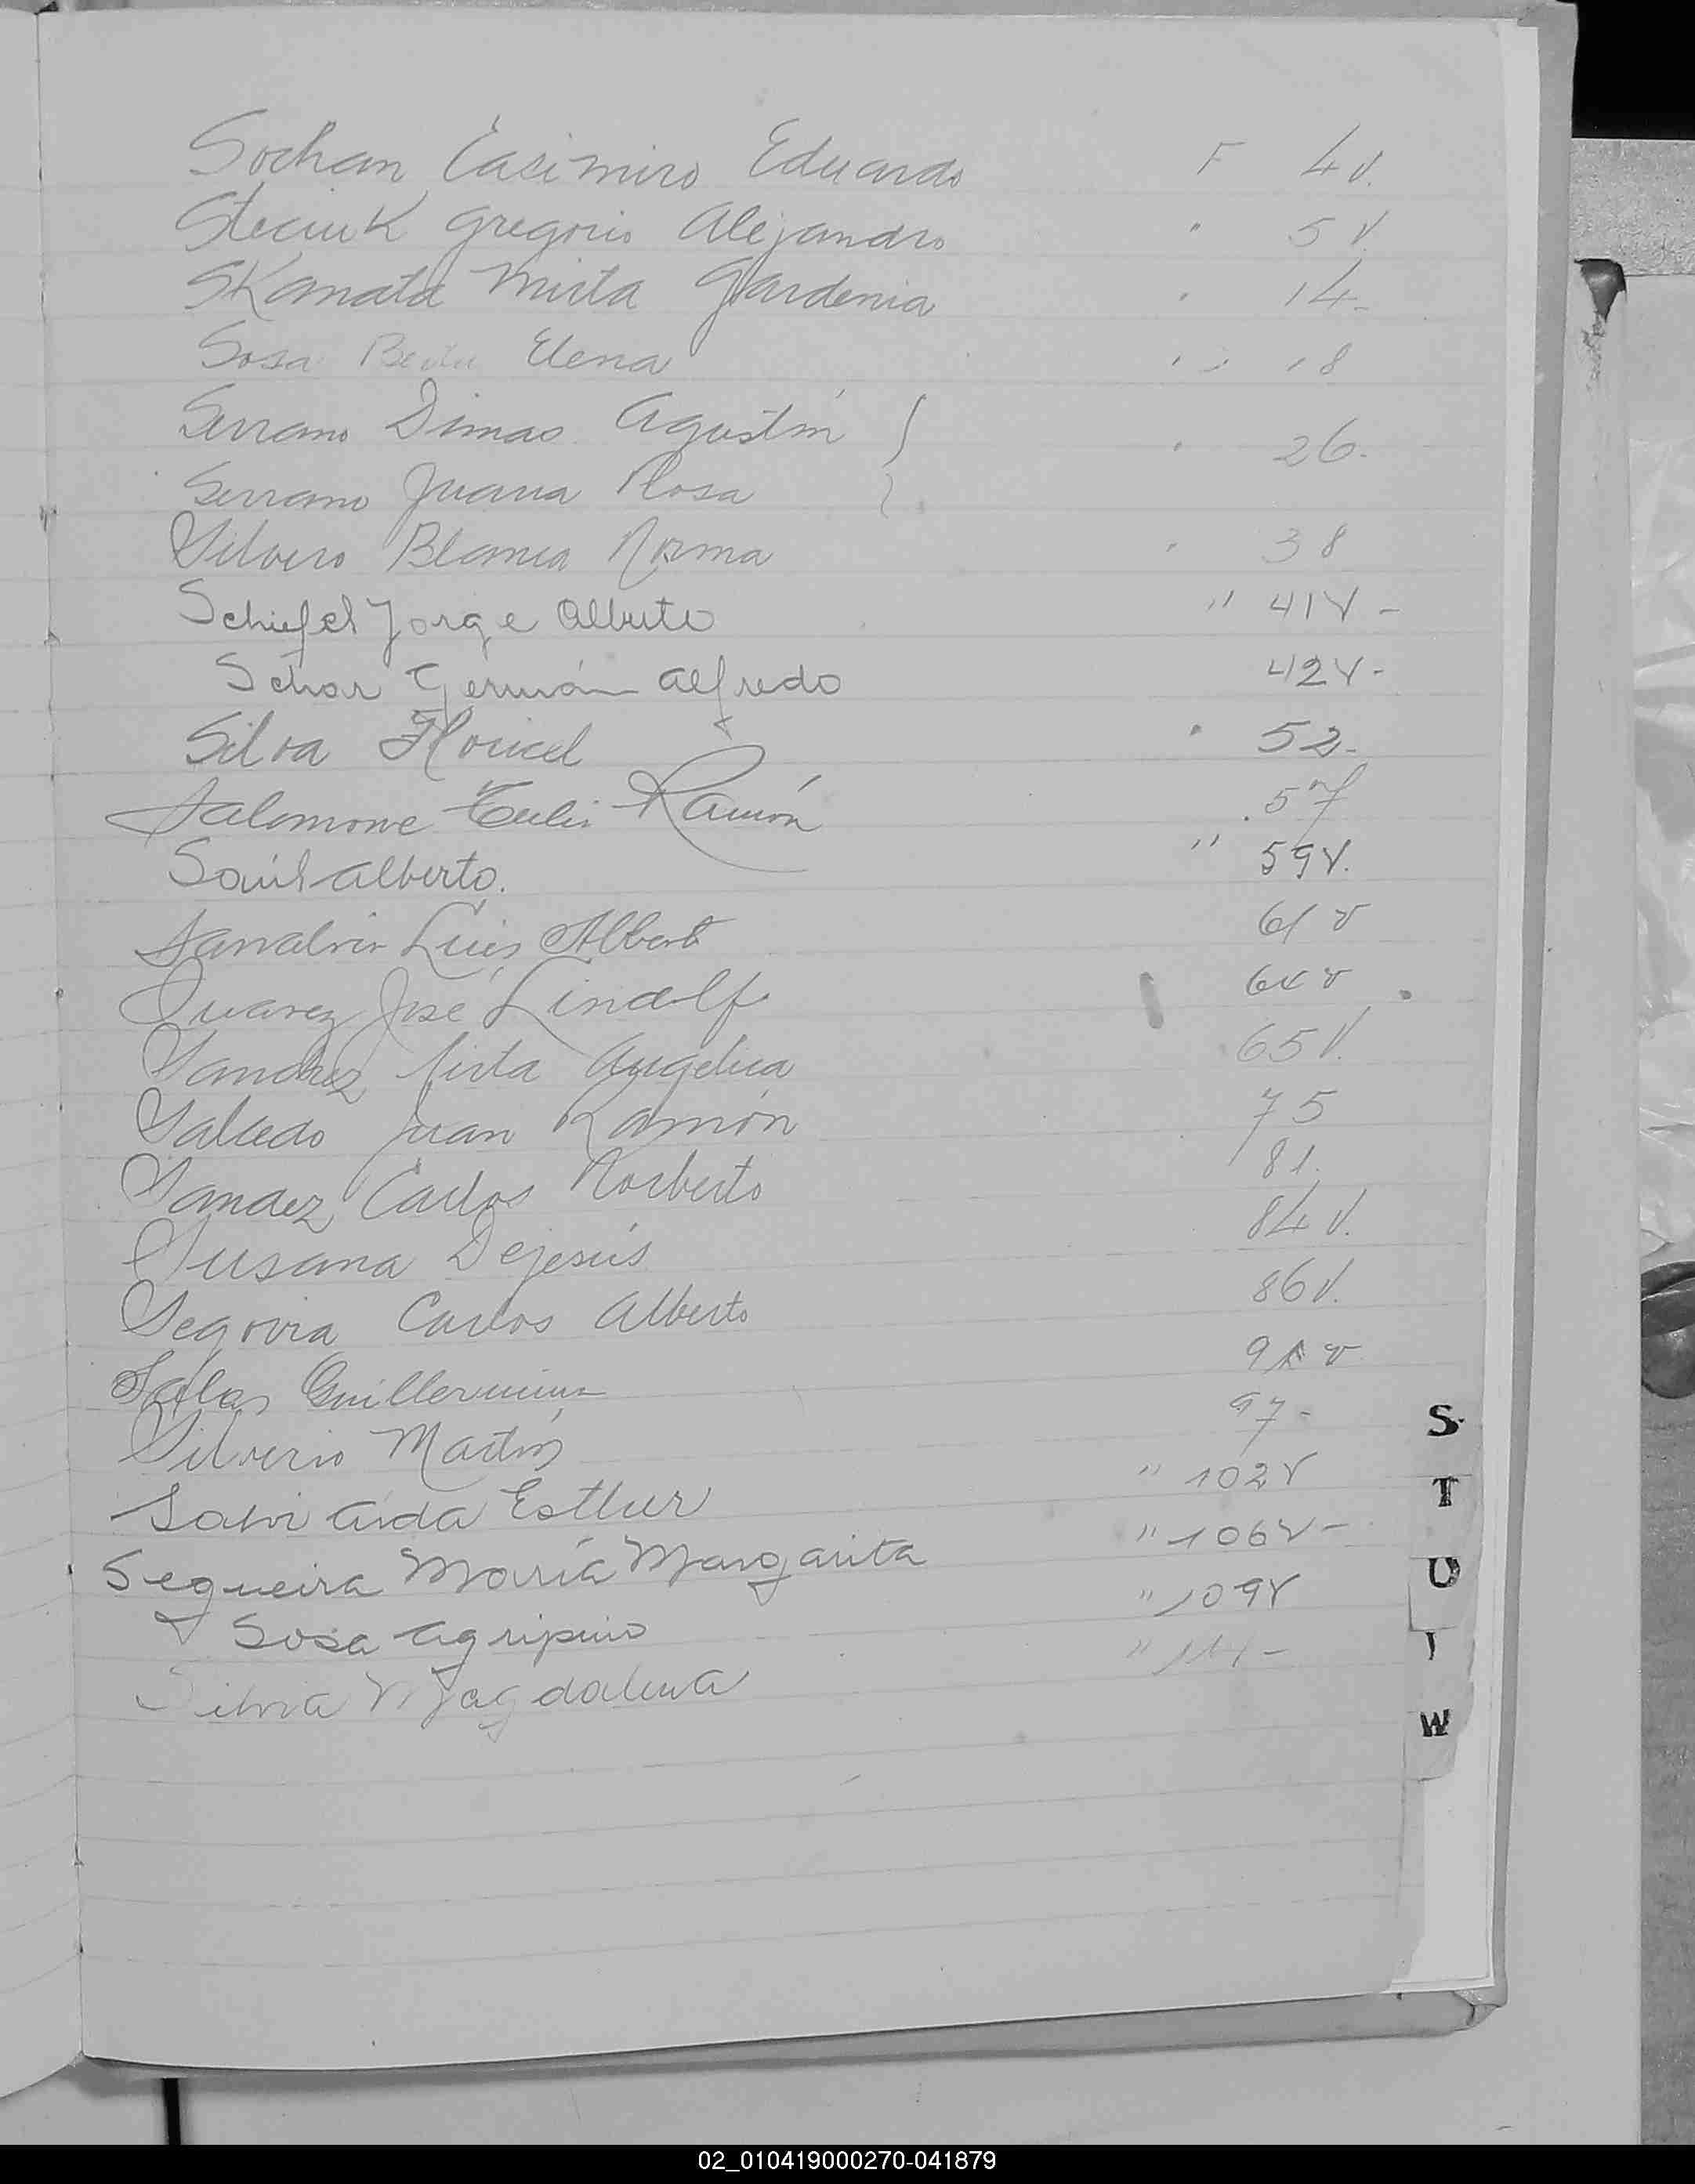 Sochan Casimiro Eduardo F 4 v.
Steciuk Gregorio Alejandro " 5 v.
SKamata Mirta Gardenia " 14-
Sosa Berta Elena " 18
Serrano Dimas Agustín } " 26.
Serrano Juana Rosa
Silvero Blanca Norma " 38
Schiefel Jorge Alberto " 41v-
Schor Germán Alfredo 42v-
Silva Floricel " 52-
Salomone Ramón 57
Saúl Alberto. " 59v.
Luis Alberto 61 v
Suarez José Lindolfo 64 v
Sanchez Mirta Angelica 65 v.
Salcedo Juan Ramón 75
Sandez Carlos Norberto 81.
Susana Dejesús 84 v.
Segovia Carlos Alberto 86 v.
Salas Guillermina 91 v
Silverio Martín 97-
Aída Esther " 102v
Segueira María Margarita " 106v-
Sosa Agripino " 109v
Silvia Magdalena " 111-
S
T
U
W
02_010419000270-041879